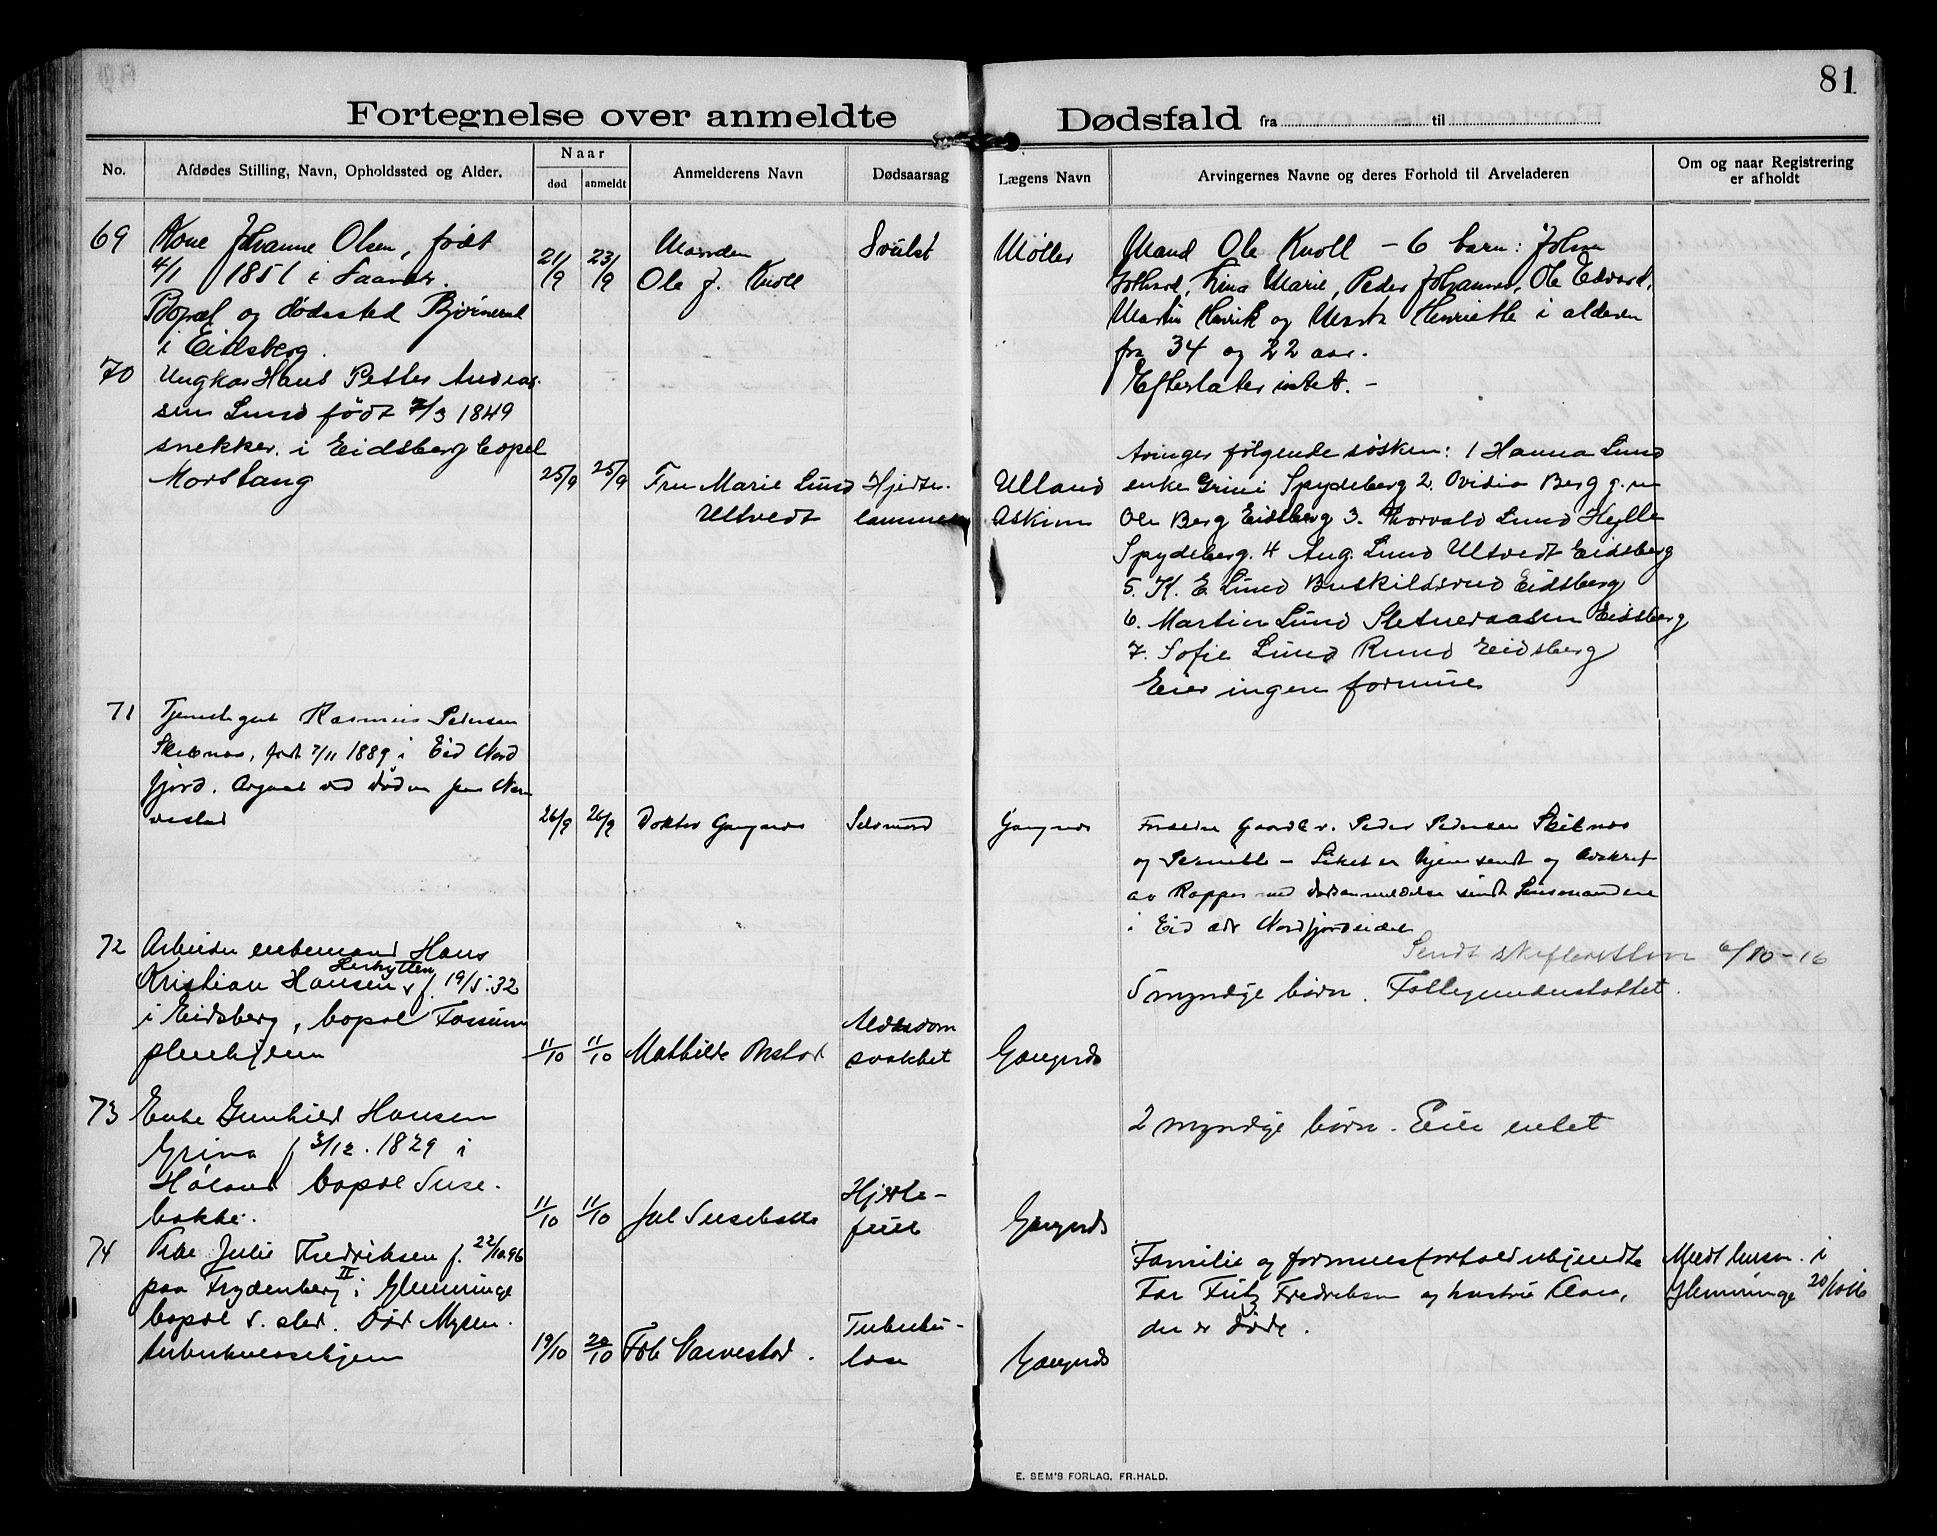 81
Fortegnelse over anmeldte Dødsfald fra til
No.
Afdødes Stilling, Navn, Opholdssted og Alder.
Naar
død
anmeldt
Anmelderens Navn
Dødsaarsag
Lægens Navn
Arvingernes Navne og deres Forhold til Arveladeren
Om og naar Registrering
er afholdt
69
Kone Johanne Olsen, født
4/1 1851 i Saaner.
Bopæl og dødssted Bjørnerud
i Eidsberg.
21/9
23/9
Manden
Ole J. Knoll
Svulst
Møller
Mand Ole Knoll - 6 barn: Johan
Gothard, Lina Marie, Peder Johannes, Ole Edvard,
Martin Henrik og Marta Henriette i alderen
fra 34 og 22 aar.
Efterlater intet. -
70
Ungkar Hans Petter Andreas-
sen Lund født 7/3 1849
snekker i Eidsberg bopel
Morstang
25/9
25/9
Fru Marie Lund
Ultvedt
Hjerte-
lammelse
Ulland
Askim
Arvinger følgende søsken: 1 Hanna Lund
enke Grini Spydeberg 2. Ovidia Berg g. m
Ole Berg Eidsberg 3. Thorvald Lund Hylle
Spydeberg. 4 Aug. Lund Ultvedt Eidsberg
5. K. E. Lund Buskildsrud Eidsberg
6. Martin Lund Sletneraasen Eidsberg
7. Sofie Lund Rund Eidsberg
Eier ingen formue
71
Tjenestegut Rasmus Pedersen
født 7/11 1889 i Eid Nord
fjord. ved døden paa Nar
vestad
26/9
26/9
Doktor Gangnæs
Selvmord
Gangnæs
Forældre Gaardbr. Peder Pedersen
og Pernille - Liket er hjemsendt og Avskrift
av Rapper med dødsanmeldelse sendt Lensmanden
i Eid adr Nordfjordeidet
Sendt skifteretten 6/10-16
72
Arbeider enkemand Hans
Kristian Hansen f. 19/5.32
i Eidsberg, bopæl Fossum
pleiehjem
11/10
11/10
Mathilde Onstad
Alderdom
svakhet
Gangnæs
5 myndige børn. Fattigunderstøttet.
73
Enke Gunhild Hansen
Grina f 3/12. 1829 i
Høland bopæl Suse-
bakke.
11/10
11/10
Susebakke
Hjerte-
feil
Gangnæs
2 myndige børn. Eier intet
74
Pike Julie Fredriksen f. 22/10.96
paa Frydenberg II i Glemminge
bopæl s. sted. Død Mysen
tuberkulosehjem
19/10
20/10
Frk Narvestad.
Tuberku-
lose
Gangnæs
Familie og formuesforhold ukjendte
Far Fritz Fredriksen og hustru Klara,
der er døde.
Meldt lensm. i
Glemminge 20/10 16
E. SEM'S FORLAG, FR.HALD.